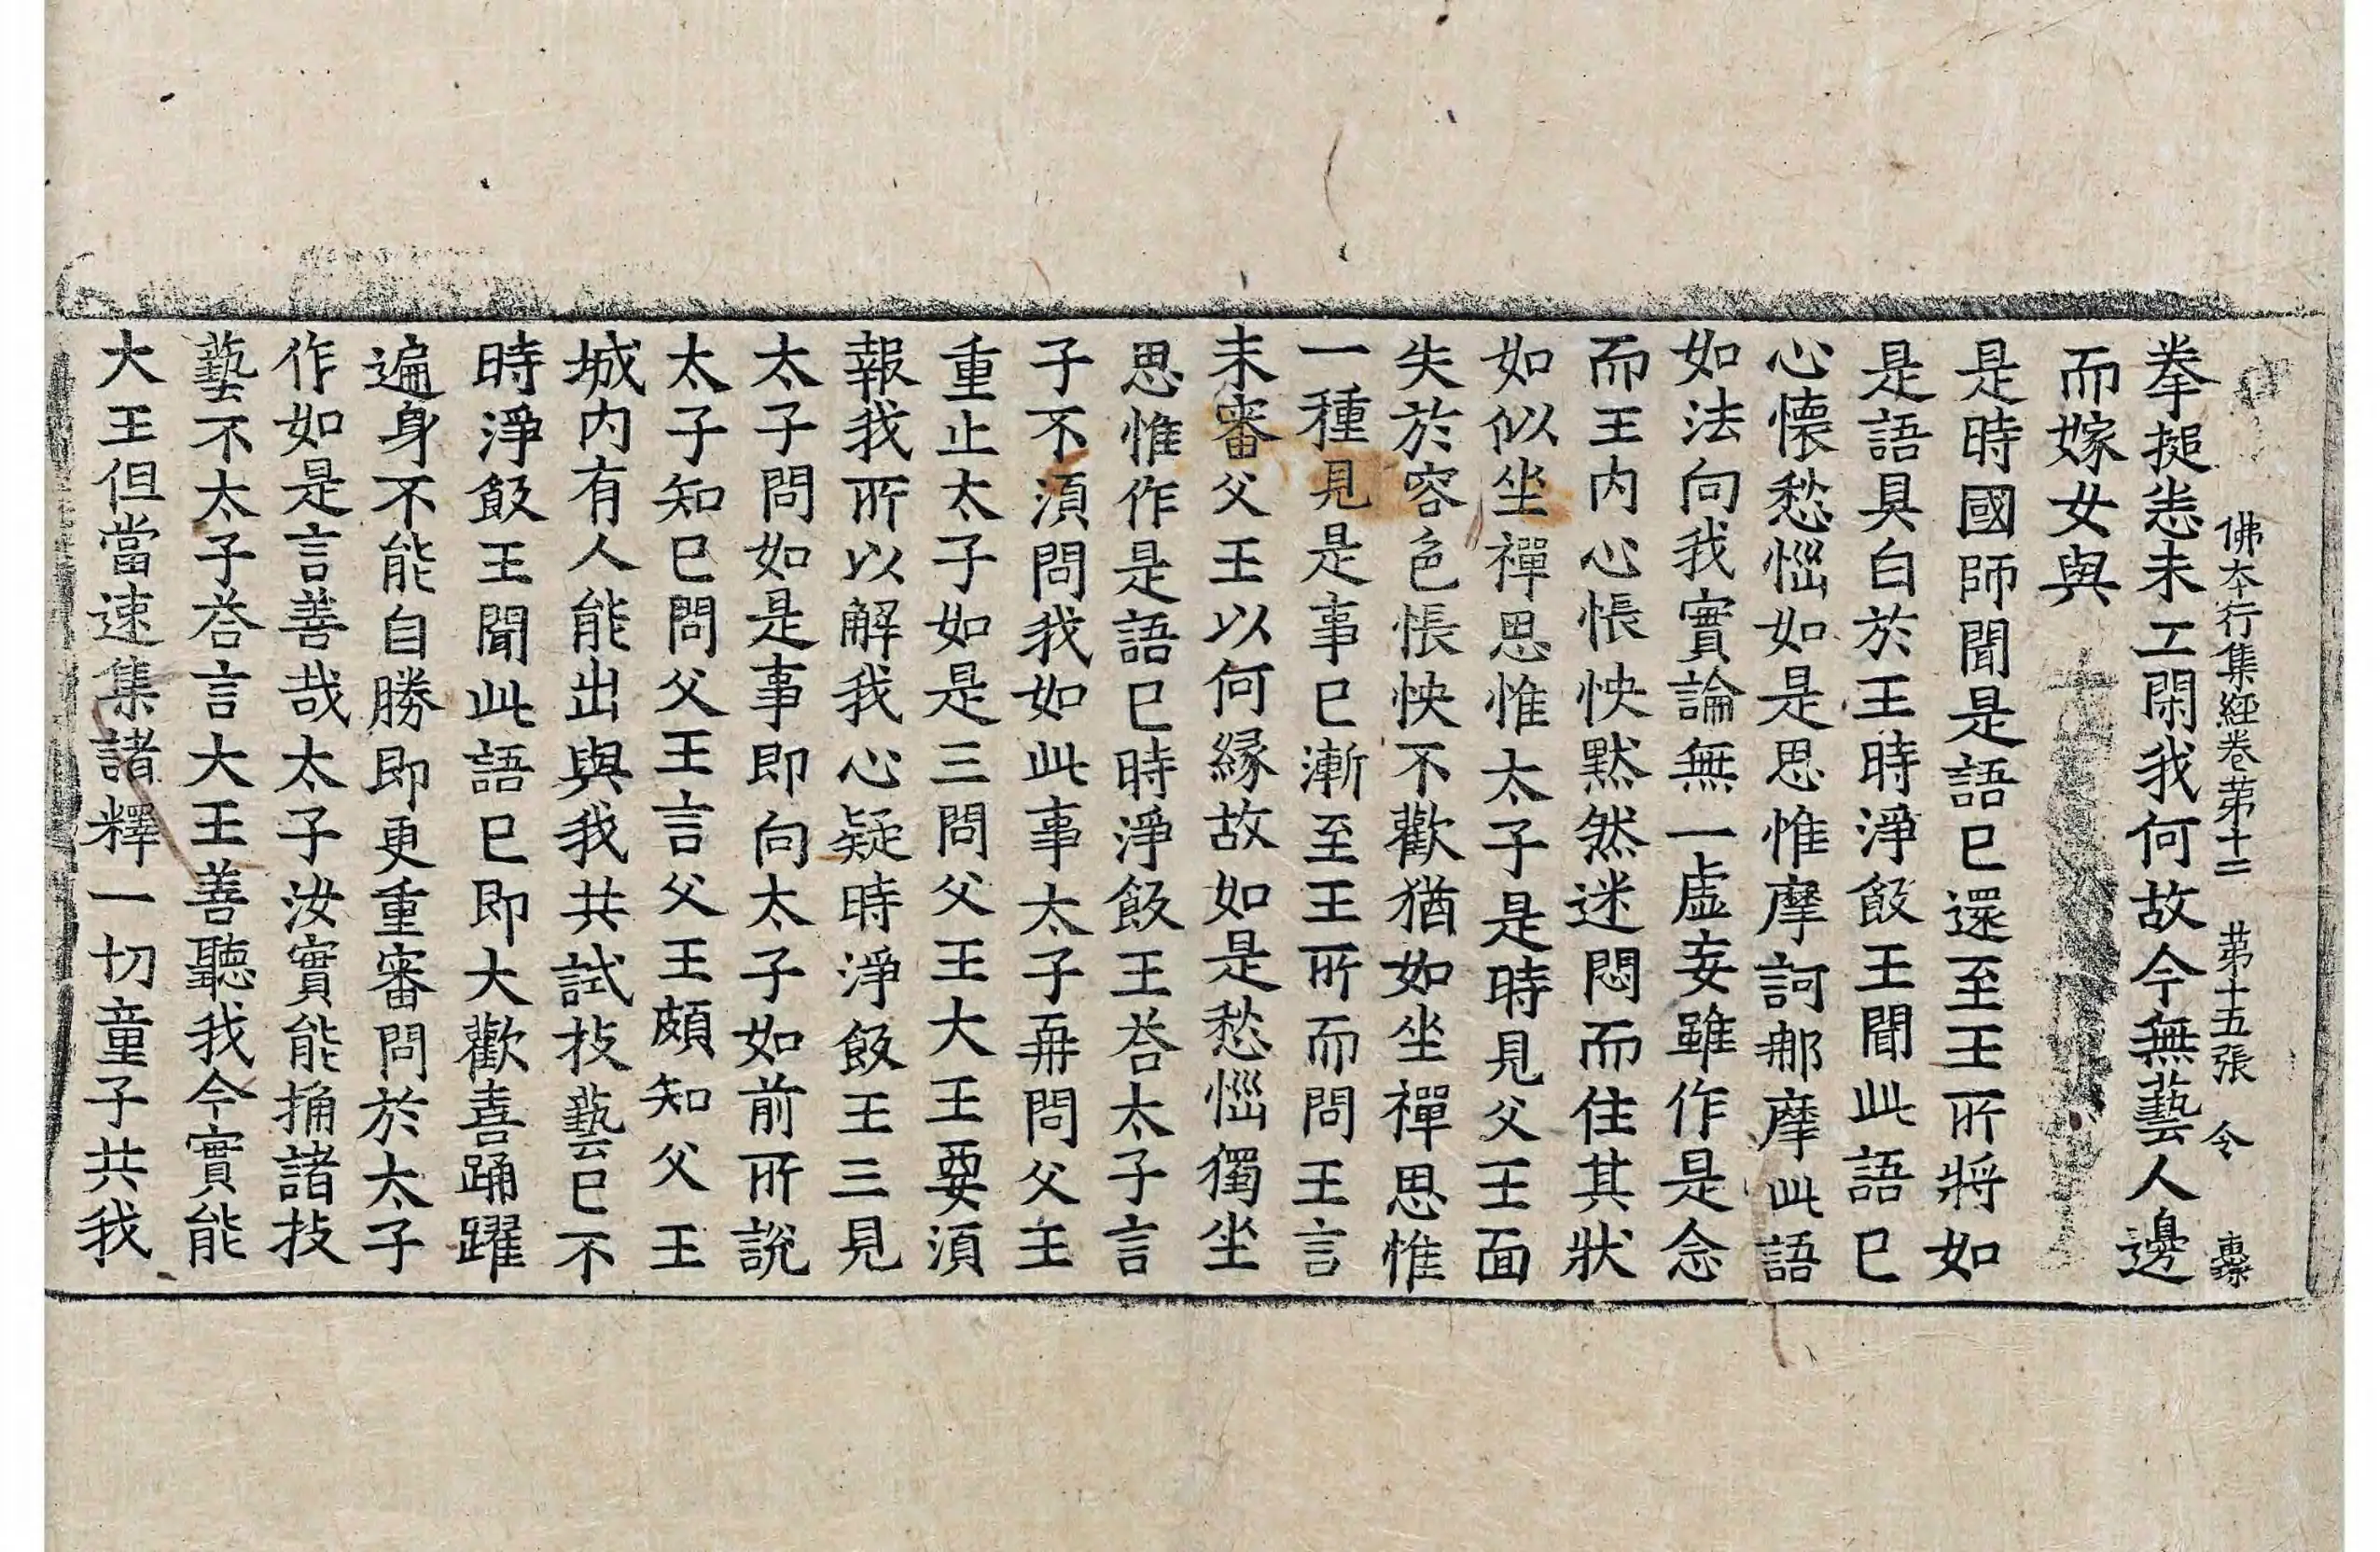 佛本行集經卷苐十二　苐十五張　令
拳搥恙未工閑我何故今無藝人邊
而嫁女與
是時國師聞是語已還至王所將如
是語具白於王時淨飯王聞此語已
心懷愁惱如是思惟摩訶那摩此語
如法向我實論無一虛妄雖作是念
而王内心悵怏黙然迷悶而住其狀
如似坐禪思惟太子是時見父王面
失於容色悵怏不歡猶如坐禪思惟
一種見是事已漸至王所而問王言
未審父王以何縁故如是愁惱獨坐
思惟作是語已時淨飯王荅太子言
子不須問我如此事太子再問父王
重止太子如是三問父王大王要須
報我所以解我心疑時淨飯王三見
太子問如是事即向太子如前所說
太子知已問父王言父王頗知父王
城内有人能出與我共試技藝已不
時淨飯王聞此語已即大歡喜踊躍
遍身不能自勝即更重審問於太子
作如是言善哉太子汝實能捔諸技
藝不太子荅言大王善聽我今實能
大王但當速集諸釋一切童子共我